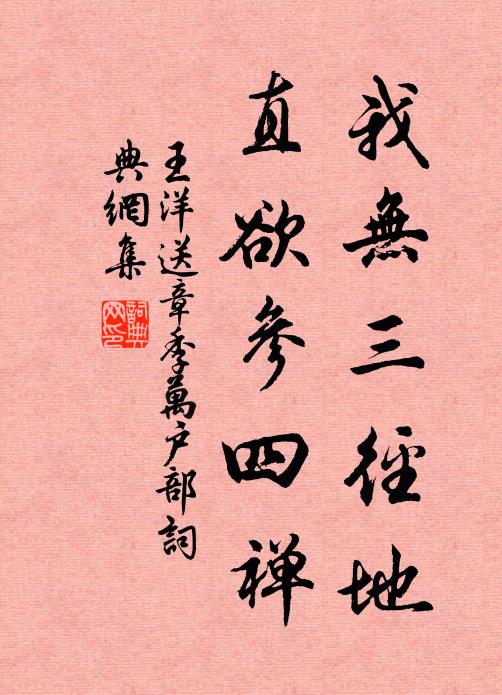 我無三徑地
直欲參四禅
王洋送章季萬户部詞
典網集
詞典网印